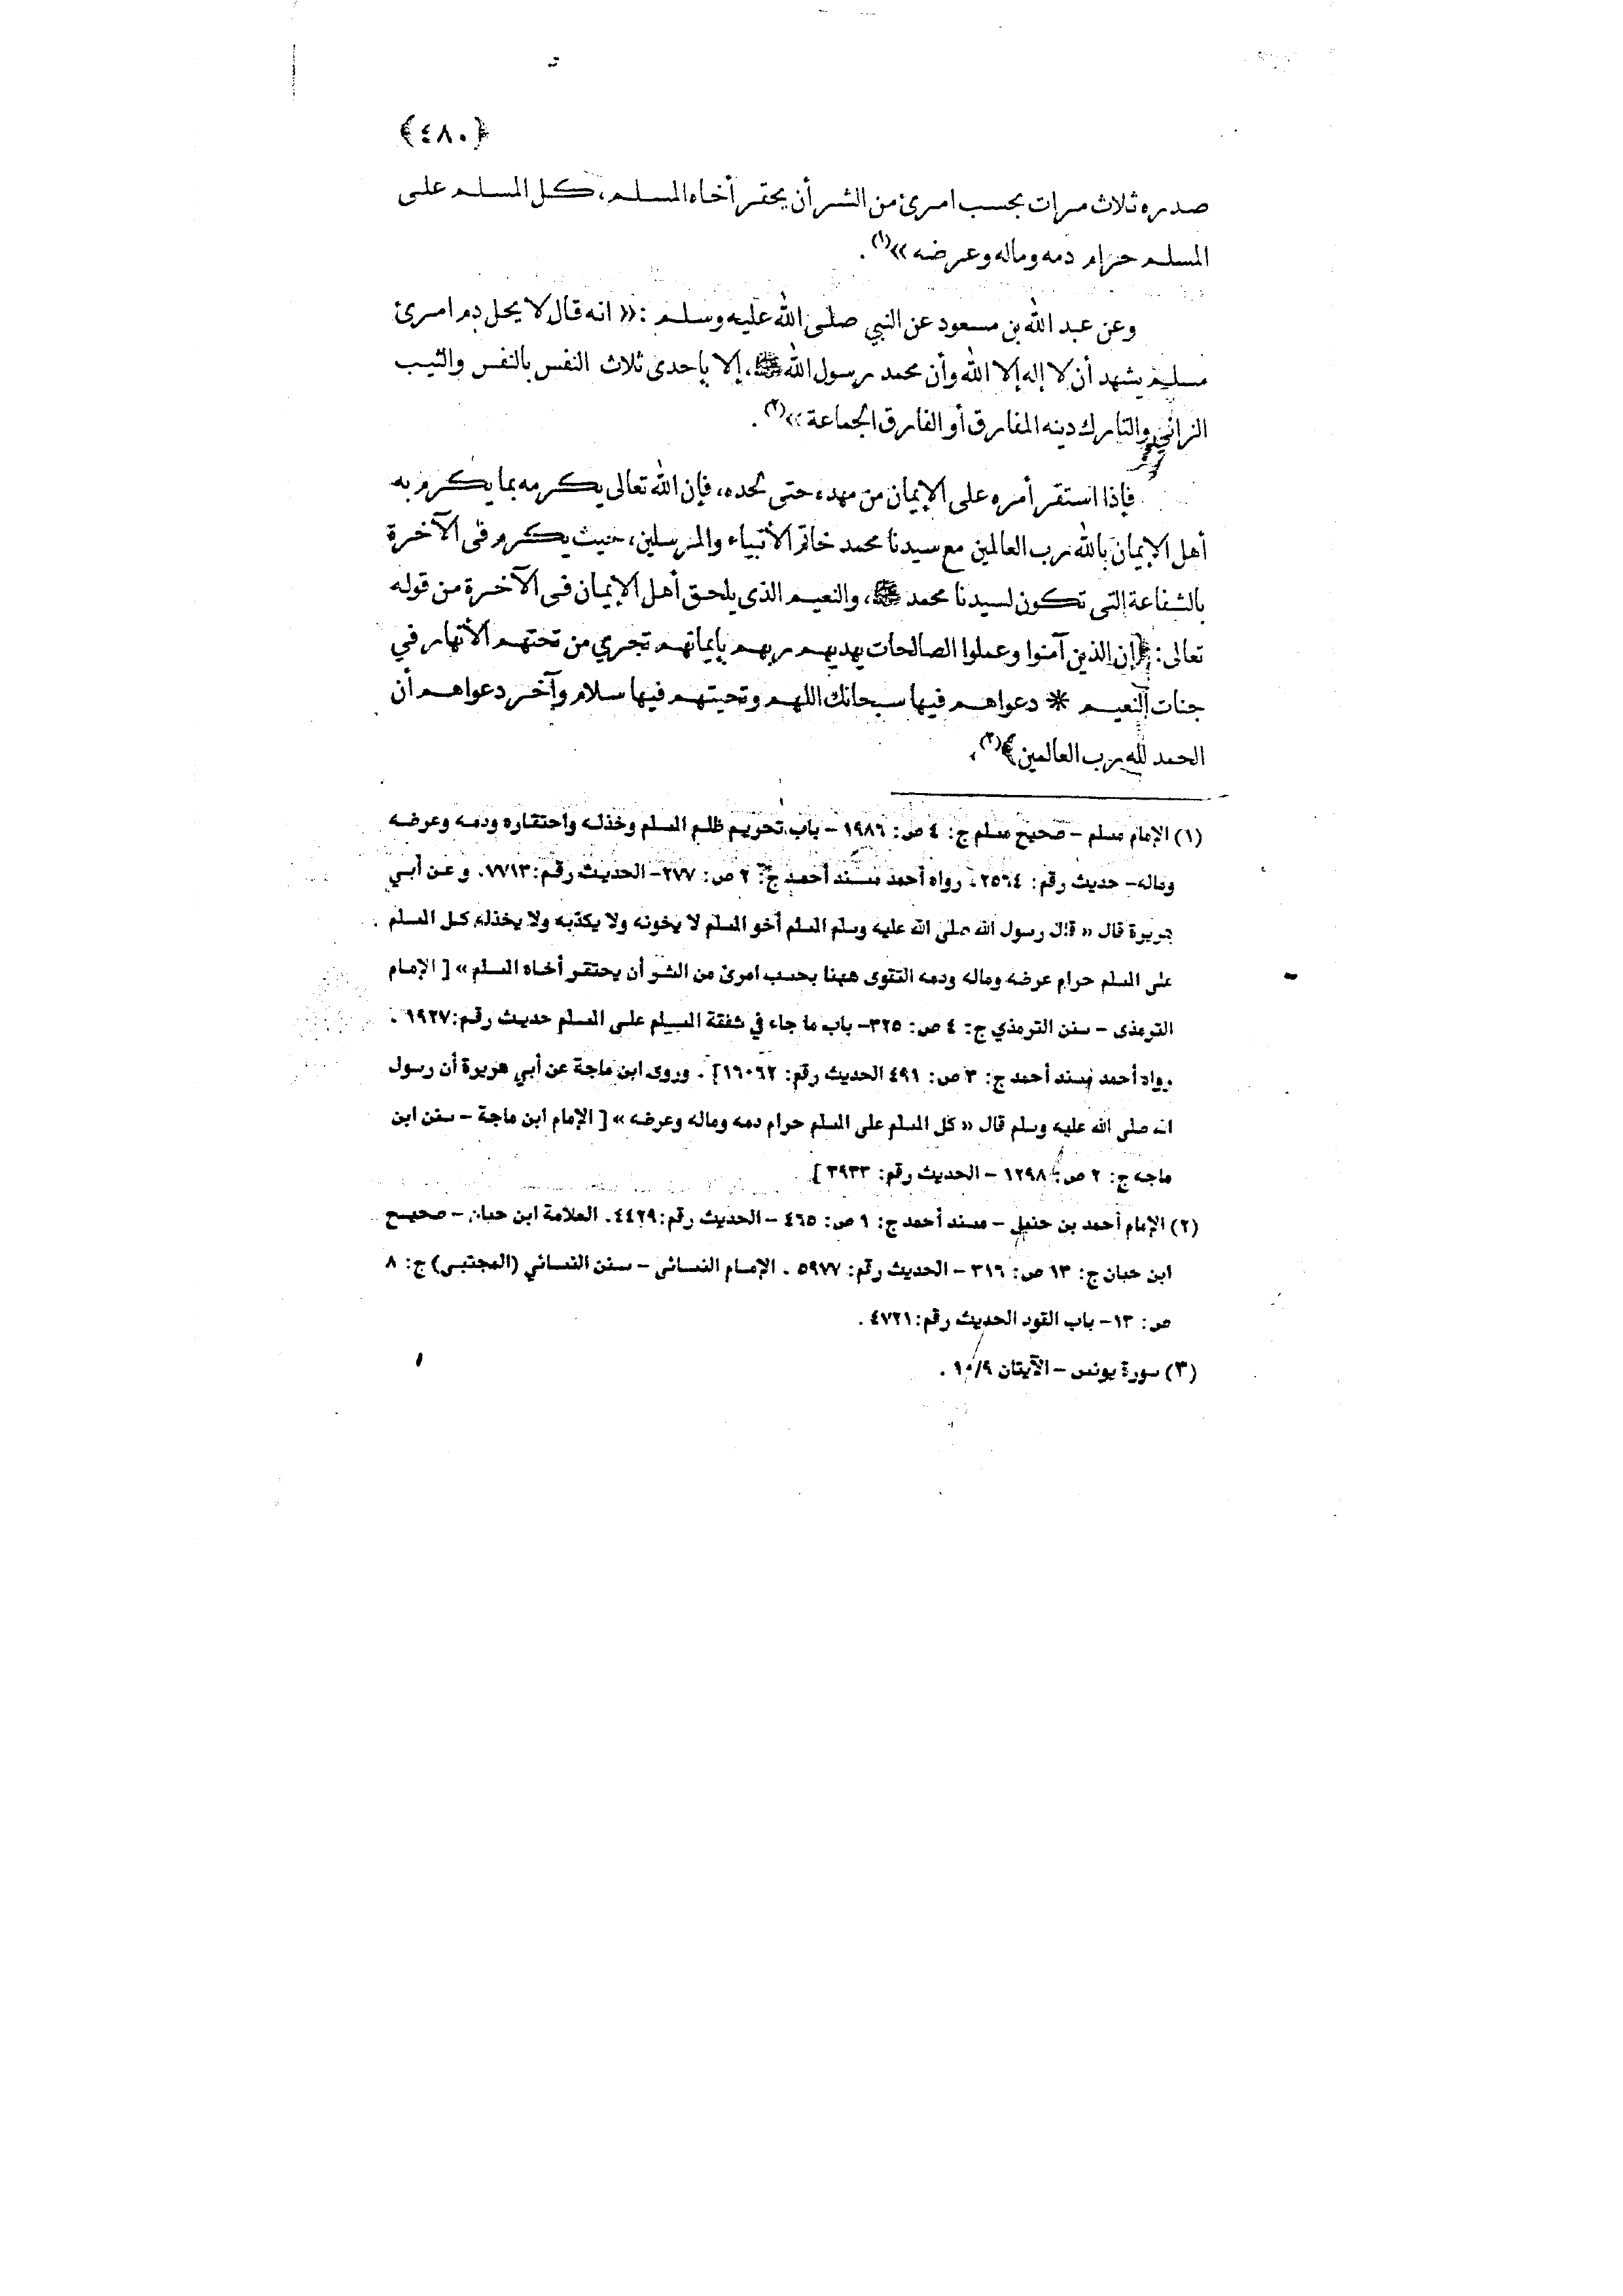 ﴿٤٨٠﴾
صدره ثلاث مرات بحسب امرئ من الشر أن يحقر أخاه المسلم، كل المسلم على
المسلم حرام دمه وماله وعرضه»(١).
وعن عبد الله بن مسعود عن النبي صلى الله عليه وسلم :« انه قال لا يحل دم امرئ
مسلم يشهد أن لا إله إلا الله وأن محمد رسول الله ﷺ، إلا بإحدى ثلاث النفس بالنفس والثيب
الزاني والتارك دينه المفارق أو الفارق الجماعة»(٢).
فإذا استقر أمره على الإيمان من مهده حتى لحده، فإن الله تعالى يكرمه بما يكرم به
أهل الإيمان بالله رب العالمين مع سيدنا محمد خاتم الأنبياء والمرسلين، حيث يكرم فى الآخرة
بالشفاعة التى تكون لسيدنا محمد ﷺ، والنعيم الذى يلحق أهل الإيمان فى الآخرة من قوله
تعالى: ﴿إن الذين آمنوا وعملوا الصالحات يهديهم ربهم بإيمانهم تجري من تحتهم الأنهار في
جنات النعيم * دعواهم فيها سبحانك اللهم وتحيتهم فيها سلام وآخر دعواهم أن
الحمد لله رب العالمين﴾(٣).
(١) الإمام مسلم – صحيح مسلم ج: ٤ ص: ١٩٨٦ – باب تحريم ظلم المسلم وخذله واحتقاره ودمه وعرضه
وماله– حديث رقم: ٢٥٦٤. رواه أحمد مسند أحمد ج: ٢ ص: ٢٧٧– الحديث رقم:٧٧١٣. و عن أبي
هريرة قال « قال رسول الله صلى الله عليه وسلم المسلم أخو المسلم لا يخونه ولا يكذبه ولا يخذله كل المسلم
على المسلم حرام عرضه وماله ودمه التقوى ههنا بحسب امرئ من الشر أن يحتقر أخاه المسلم » [ الإمام
الترمذى – سنن الترمذي ج: ٤ ص: ٣٢٥– باب ما جاء في شفقة المسلم على المسلم حديث رقم:١٩٢٧ .
رواه أحمد مسند أحمد ج: ٣ ص: ٤٩١ الحديث رقم: ١٦٠٦٢] . وروى ابن ماجة عن أبي هريرة أن رسول
الله صلى الله عليه وسلم قال « كل المسلم على المسلم حرام دمه وماله وعرضه » [ الإمام ابن ماجة – سنن ابن
ماجه ج: ٢ ص: ١٢٩٨ – الحديث رقم: ٣٩٣٣ ]
(٢) الإمام أحمد بن حنبل – مسند أحمد ج: ١ ص: ٤٦٥ – الحديث رقم:٤٤٢٩. العلامة ابن حبان – صحيح
ابن حبان ج: ١٣ ص: ٣١٦ – الحديث رقم: ٥٩٧٧ . الإمام النسائى – سنن النسائي (المجتبى) ج: ٨
ص: ١٣– باب القود الحديث رقم:٤٧٢١ .
(٣) سورة يونس – الآيتان ١٠/٩ .